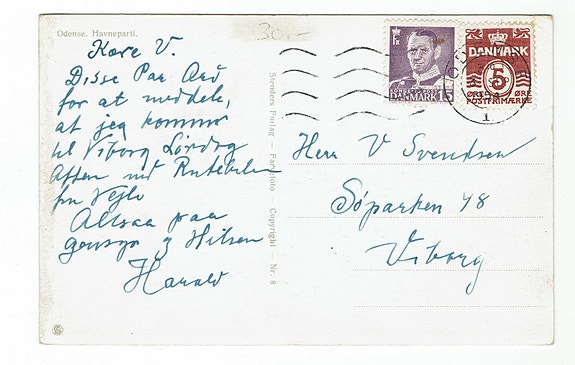 Odense. Havneparti.
30,-
Kære V.
Disse Par Ord
for at meddele,
at jeg kommer
til Viborg Lørdag
Aften med Rutebilen
fra Vejle
Altsaa paa
gensyn og Hilsen
Harald
Stenders Forlag — Foto Copyright — Nr. 8
DANMARK 15
DANMARK
5
ØRE ØRE
POSTFRIMÆRKE
Herr V Svendsen
Søparken 48
Viborg